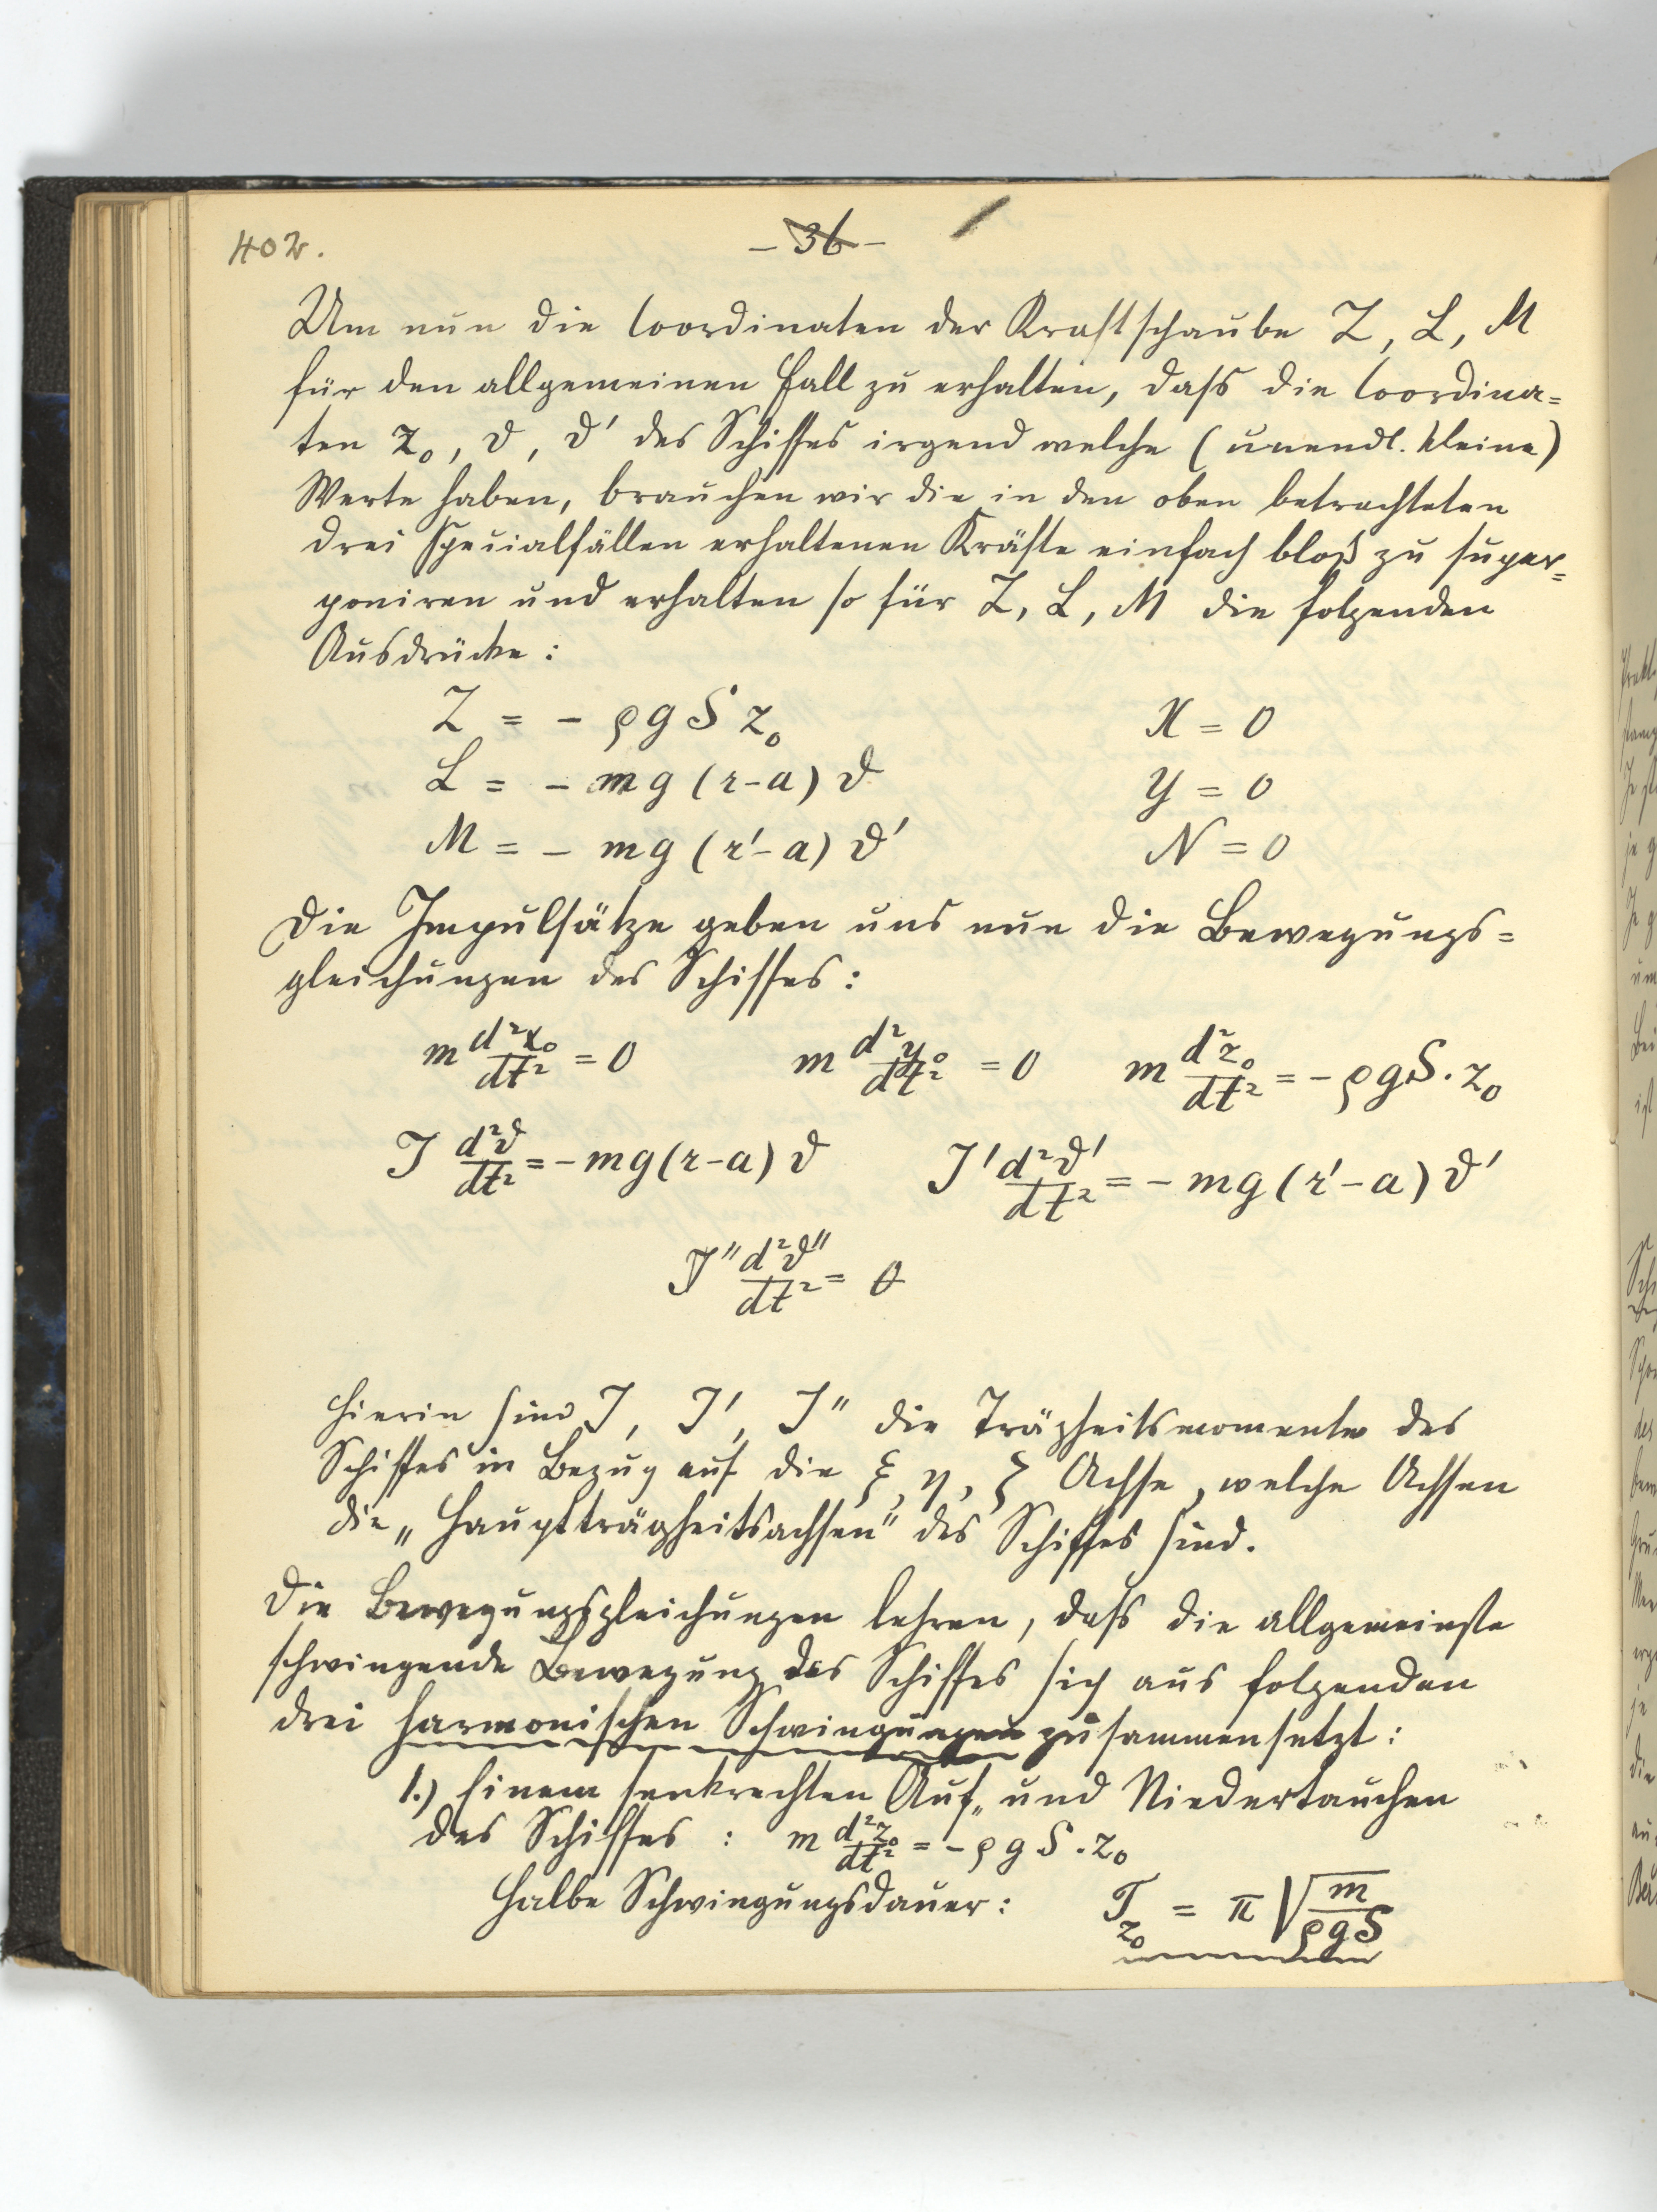 402.
- 36 -
Um nun die Coordinaten der Kraftschaube Z, L, M
für den allgemeinen Fall zu erhalten, dass die Coordina=
ten z₀, ϑ, ϑ' des Schiffes irgend welche (unendl. kleine)
Werte haben, brauchen wir die in den oben betrachteten
drei Specialfällen erhaltenen Kräfte einfach bloß zu super=
poniren und erhalten so für Z, L, M die folgenden
Ausdrücke:
Z = - ρgS z₀ X = 0
L = - mg (r-a) ϑ Y = 0
M = - mg (r'-a) ϑ' N = 0
Die Impulsätze geben uns nun die Bewegungs=
gleichungen des Schiffes:
m d²x₀/dt² = 0 m d²y₀/dt² = 0 m d²z₀/dt² = - ρgS. z₀
J d²ϑ/dt² = - mg(r-a) ϑ J' d²ϑ'/dt² = - mg (r'-a) ϑ'
J'' d²ϑ''/dt² = 0
Hierin sind J, J', J'' die Trägheitsmomente des
Schiffes in Bezug auf die ξ, η, ζ Achse, welche Achsen
die „Hauptträgheitsachsen" des Schiffes sind.
Die Bewegungsgleichungen lehren, dass die allgemeinste
schwingende Bewegung des Schiffes sich aus folgenden
drei harmonischen Schwingungen zusammensetzt:
1.) Einem senkrechten Auf„ und Niedertauchen
des Schiffes : m d²z₀/dt² = - ρgS. z₀
Halbe Schwingungsdauer: T_z₀ = π √(m/ρgS)